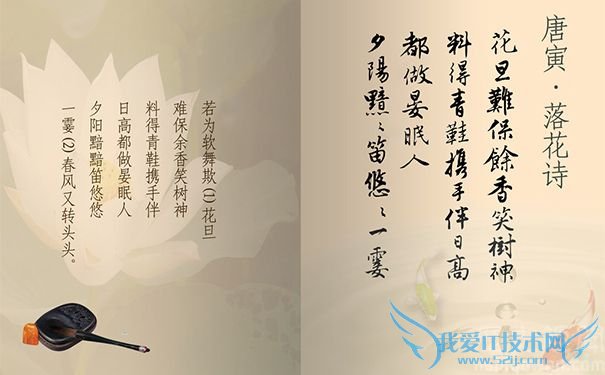 唐寅·落花诗
花旦難保餘香笑樹神
料得青鞋携手伴日高
都做晏眠人
夕陽黯〻笛悠〻一霎
若为软舞欺(1)花旦
难保余香笑树神
料得青鞋携手伴
日高都做晏眠人
夕阳黯黯笛悠悠
一霎(2)春风又转头头。
我爱IT技术网
www.52ij.com